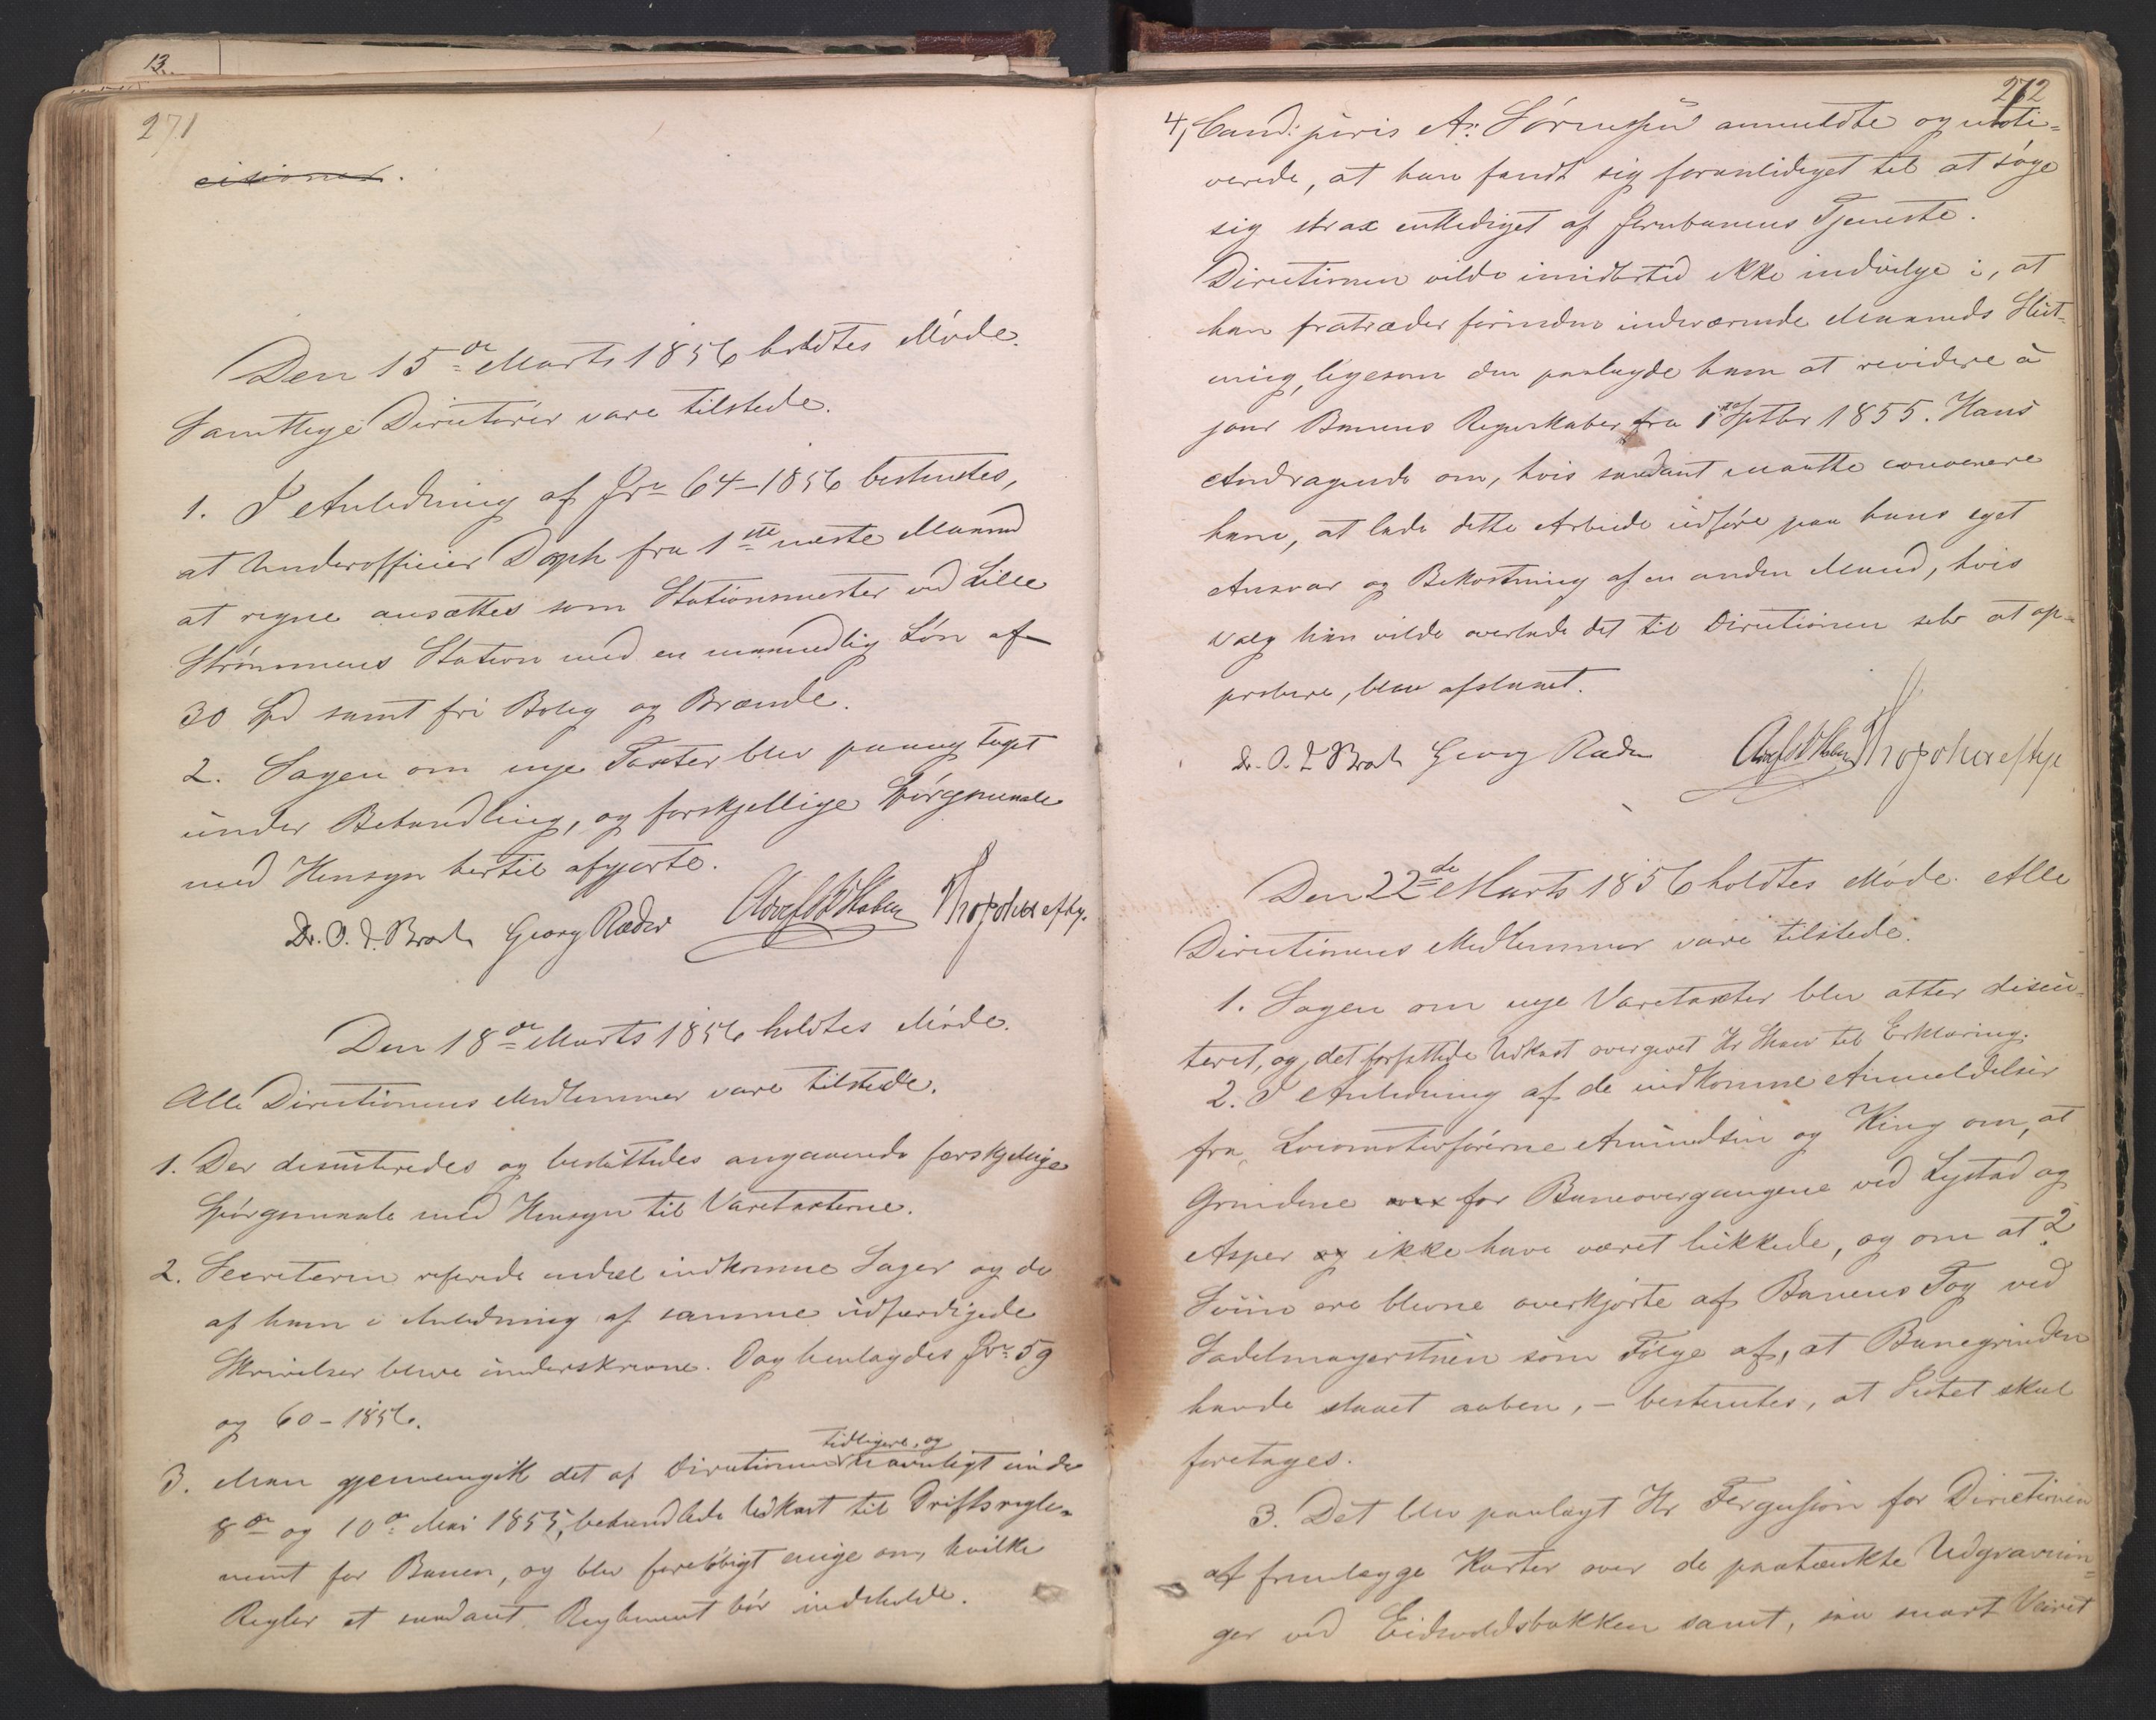 13.
271
cisioner.
Den 15de Marts 1856 holdtes Møde.
Samtlige Directører vare tilstede.
1. I Anledning af Jr 64-1856 bestemtes,
at Underofficier Doph fra 1ste næste Maaned
at regne ansættes som Stationsmester ved Lille
Strømmens Station med en maanedlig Løn af
30 Spd samt fri Bolig og Brænde.
2. Sagen om nye Taxter blev paany taget
under Behandling, og forskjellige Spørgsmaale
med Hensyn hertil afgjorte.
Dr. O. J. Broch Georg Ræder
Den 18de Marts 1856 holdtes Møde.
Alle Directionens Medlemmer vare tilstede.
1. Der discuteredes og besluttedes angaaende forskjellige
Spørgsmaale med Hensyn til Varetaxterne.
2. Secretæren refererede endeel indkomne Sager og de
af ham i Anledning af samme udfærdigede
Skrivelser bleve underskrevne. Dog henlagdes Jr 59
og 60-1856.
3. Man gjennemgik det af Directionen tidligere, og navnligt under
8de og 10de Mai 1855, behandlede Udkast til Driftsregle-
ment for Banen, og blev foreløbigt enige om, hvilke
Regler et saadant Reglement bør indeholde.
272
4, Cand: juris A: Sørensen anmeldte og moti-
verede, at han fandt sig foranlediget til at søge
sig strax entlediget af Jernbanens Tjeneste.
Directionen vilde imidlertid ikke indvilge i, at
han fratræder forinden indeværende Maaneds Slut-
ning, ligesom den paalagde ham at revidere à
jour Banens Regnskaber fra 1ste Septbr 1855. Hans
Andragende om, hvis saadant maatte convenere
ham, at lade dette Arbeide udføre paa hans eget
Ansvar og Bekostning af en anden Mand, hvis
Valg han vilde overlade det til Directionen selv at ap-
probere, blev afslaaet.
Dr. O. J. Broch Georg Ræder
Den 22de Marts 1856 holdtes Møde. Alle
Directionens Medlemmer vare tilstede.
1. Sagen om nye Varetaxter blev atter discu-
teret, og det forfattede Udkast overgivet Hr Shaw til Erklæring.
2. I Anledning af de indkomne Anmeldelser
fra Locomotivførerne Amundsen og King om, at
Grindene for Baneovergangene ved Lystad og
Asper ikke have været lukkede, og om at 2
Sviin ere blevne overkjørte af Banens Tog ved
Sadelmagerstuen som Følge af, at Banegrinden
havde staaet aaben, - bestemtes, at Intet skal
foretages.
3. Det blev paalagt Hr Fergusson for Directionen
at fremlægge Karter over de paatænkte Udgravnin-
ger ved Eidsvoldsbakken samt, saa snart Veiret